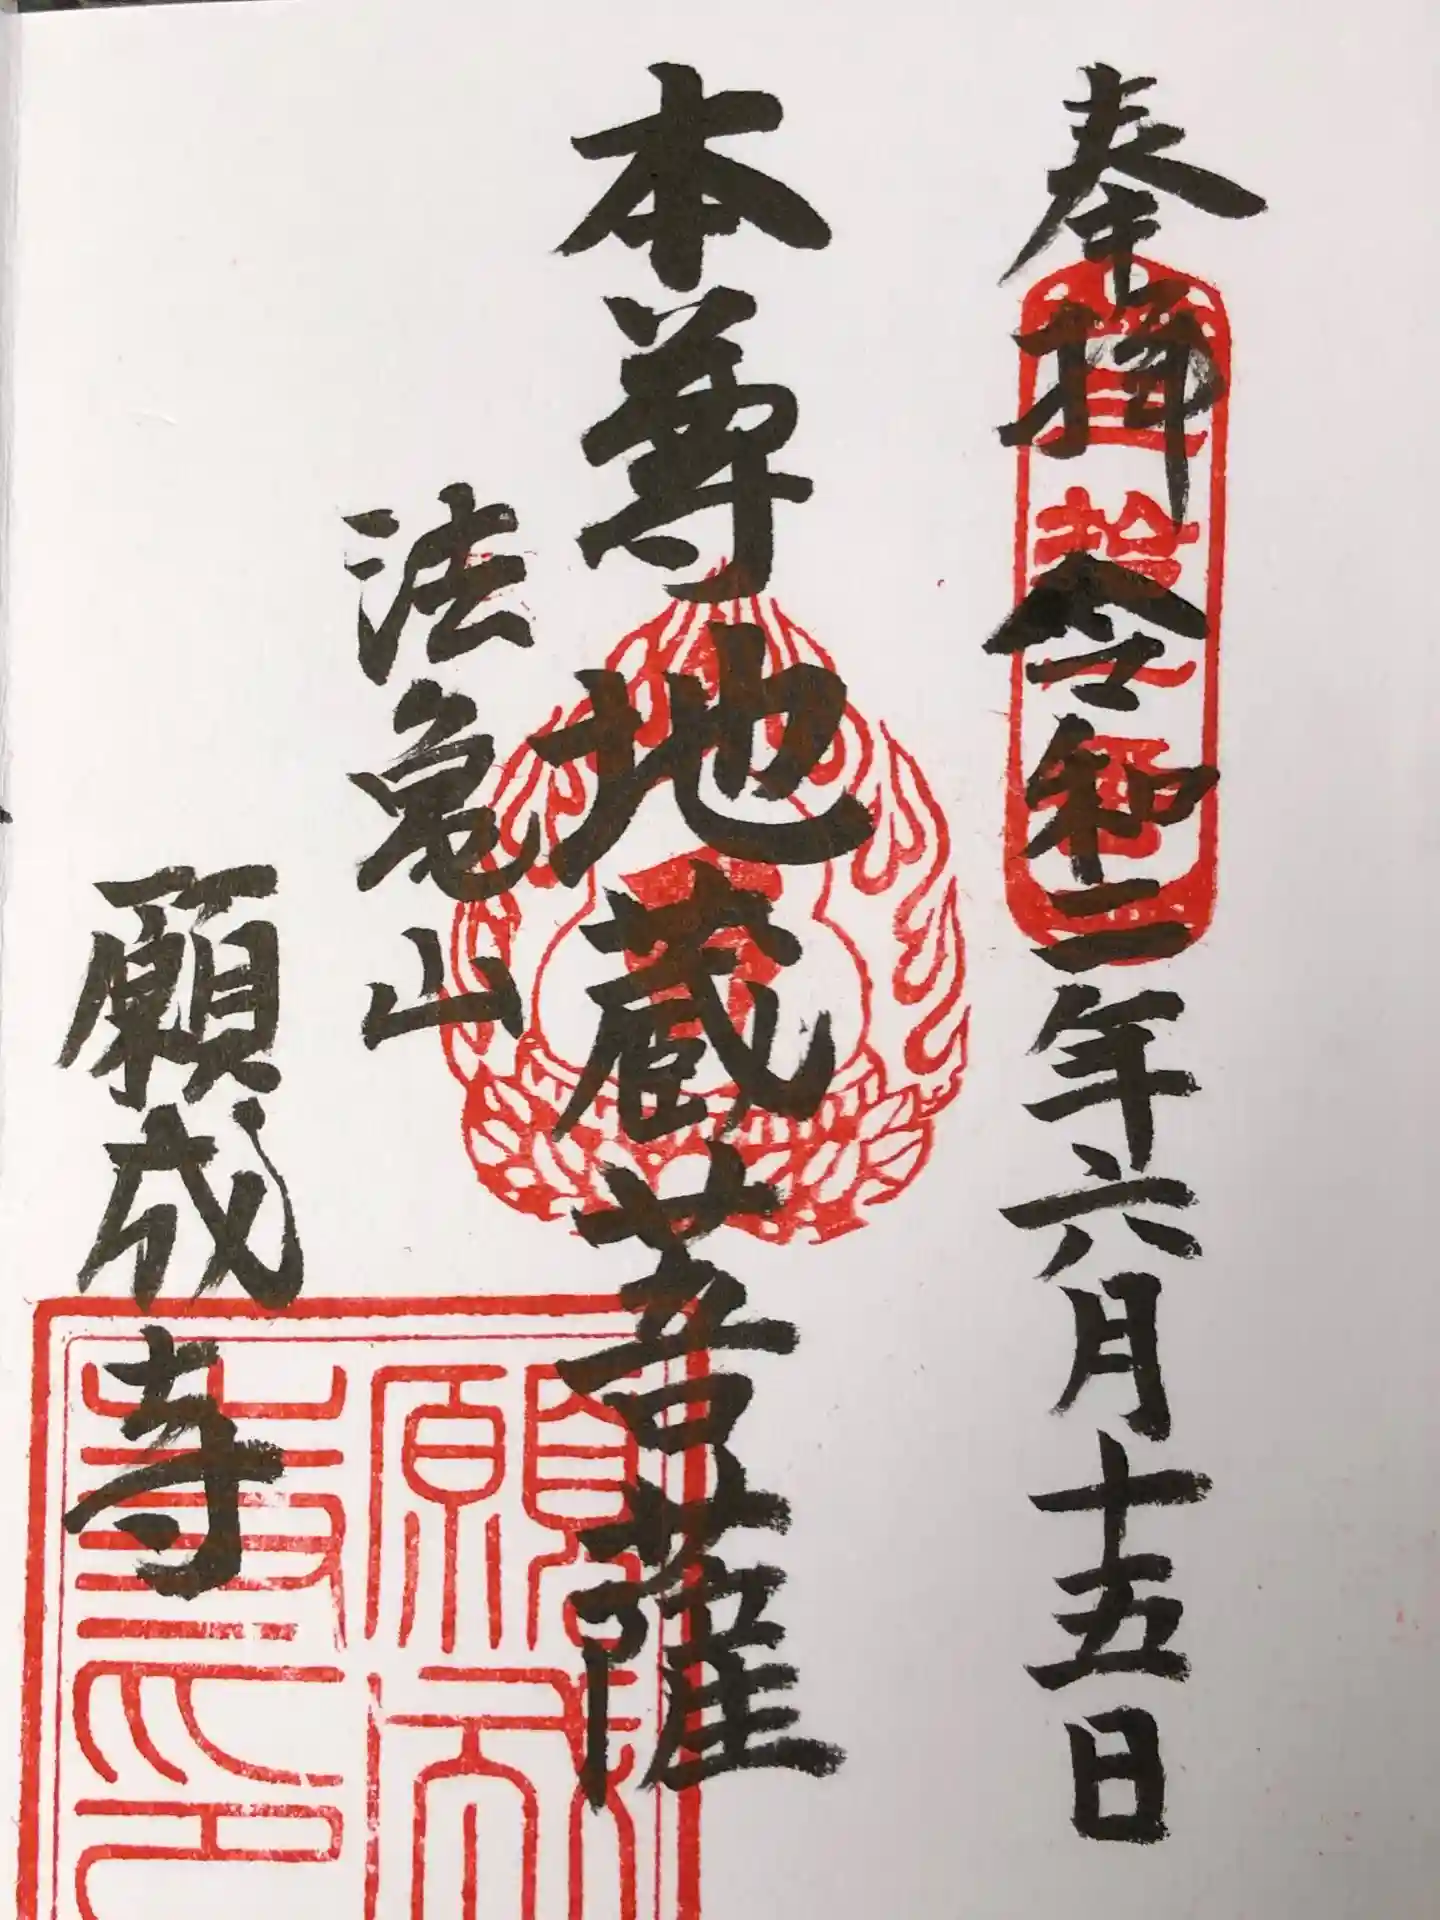 奉拝 令和二年六月十五日
本尊地蔵菩薩
法亀山
願成寺
願成寺印